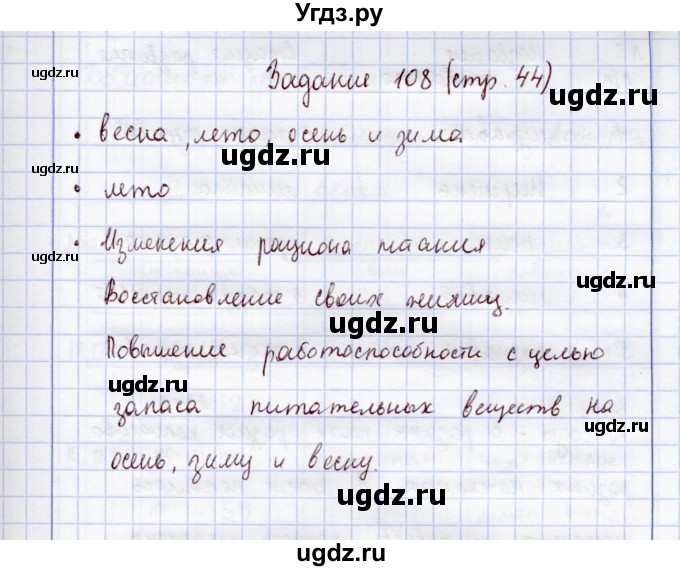 Угдз.ру
ugdz.ru
Задание 108 (стр. 44)
ugdz.ru
• весна, лето, осень и зима.
ugdz.ru
ugdz.ru
• лето
ugdz.ru
• Изменения рациона питания
ugdz.ru
Восстановление своих жилищ.
ugdz.ru
Повышение работоспособности с целью
ugdz.ru
запаса питательных веществ на
ugdz.ru
осень, зиму и весну.
ugdz.ru
ugdz.ru